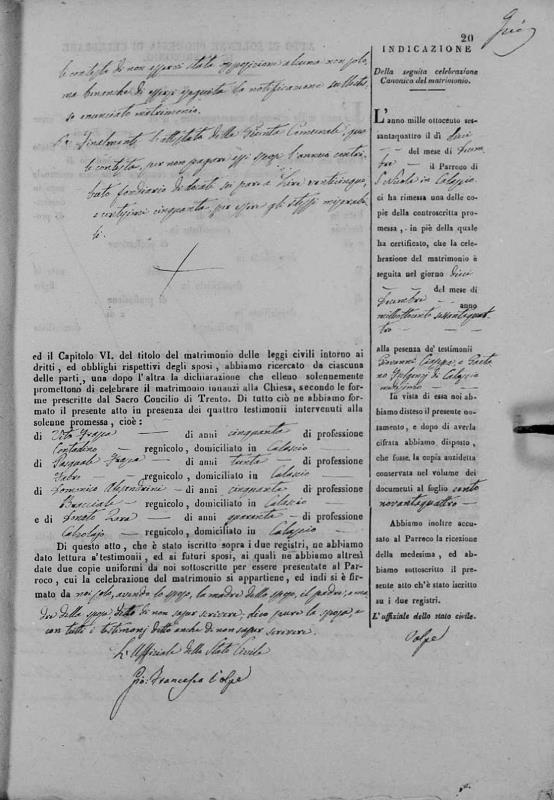 20
le contesta di non esserci stata opposizione alcuna non solo,
ma benanche di essersi eseguita la notificazione
enunciato matrimonio.
5.° Finalmente l'attestato della Giunta Comunale, qua-
le contesta, per non pagare essi sposi l'annua contri-
fondiaria di ducati sei pari a Lire venticinque,
e centesimi cinquanta per essere gli stessi miserabi-
li.
ed il Capitolo VI. del titolo del matrimonio delle leggi civili intorno ai
dritti, ed obblighi rispettivi degli sposi, abbiamo ricercato da ciascuna
delle parti, una dopo l'altra la dichiarazione che elleno solennemente
promettono di celebrare il matrimonio innanzi alla Chiesa, secondo le for-
me prescritte dal Sacro Concilio di Trento. Di tutto ciò ne abbiamo for-
mato il presente atto in presenza dei quattro testimonii intervenuti alla
solenne promessa, cioè:
di Vito — di anni cinquanta di professione
Contadino regnicolo, domiciliato in Calascio
di Pasquale — di anni trenta di professione
regnicolo, domiciliato in Calascio
di Domenico — di anni cinquanta di professione
Bracciale regnicolo, domiciliato in Calascio
e di Donato — di anni quaranta di professione
Calzolajo regnicolo, domiciliato in Calascio
Di questo atto, che è stato iscritto sopra i due registri, ne abbiamo
dato lettura a'testimonii, ed ai futuri sposi, ai quali ne abbiamo altresì
date due copie uniformi da noi sottoscritte per essere presentate al Par-
roco, cui la celebrazione del matrimonio si appartiene, ed indi si è fir-
mata da noi solo, avendo lo sposo, la madre dello sposo, il padre, e ma-
dre della sposa, detto di non saper scrivere, dico pure la sposa, e
con tutti i testimonj detto anche di non saper scrivere.
L'Uffiziale dello Stato Civile
Francesco Volpe
INDICAZIONE
Della seguita celebrazione
Canonica del matrimonio.
L'anno mille ottocento ses-
santaquattro il dì dieci
del mese di Decem-
bre — il Parroco di
S. Nicola in Calascio
ci ha rimessa una delle co-
pie della controscritta pro-
messa, in piè della quale
ha certificato, che la cele-
brazione del matrimonio è
seguita nel giorno dieci
del mese di
Decembre — anno
milleottocento sessantaquat-
tro —
alla pesenza de' testimonii
Giovanni
di Calascio
In vista di essa noi ab-
biamo disteso il presente no-
tamento, e dopo di averla
cifrata abbiamo disposto,
che fusse la copia anzidetta
conservata nel volume dei
documenti al foglio cento
novantaquattro —
Abbiamo inoltre accusa-
to al Parroco la ricezione
della medesima, ed ab-
biamo sottoscritto il pre-
sente atto ch'è stato iscritto
su i due registri.
L'uffiziale dello stato civile.
Volpe